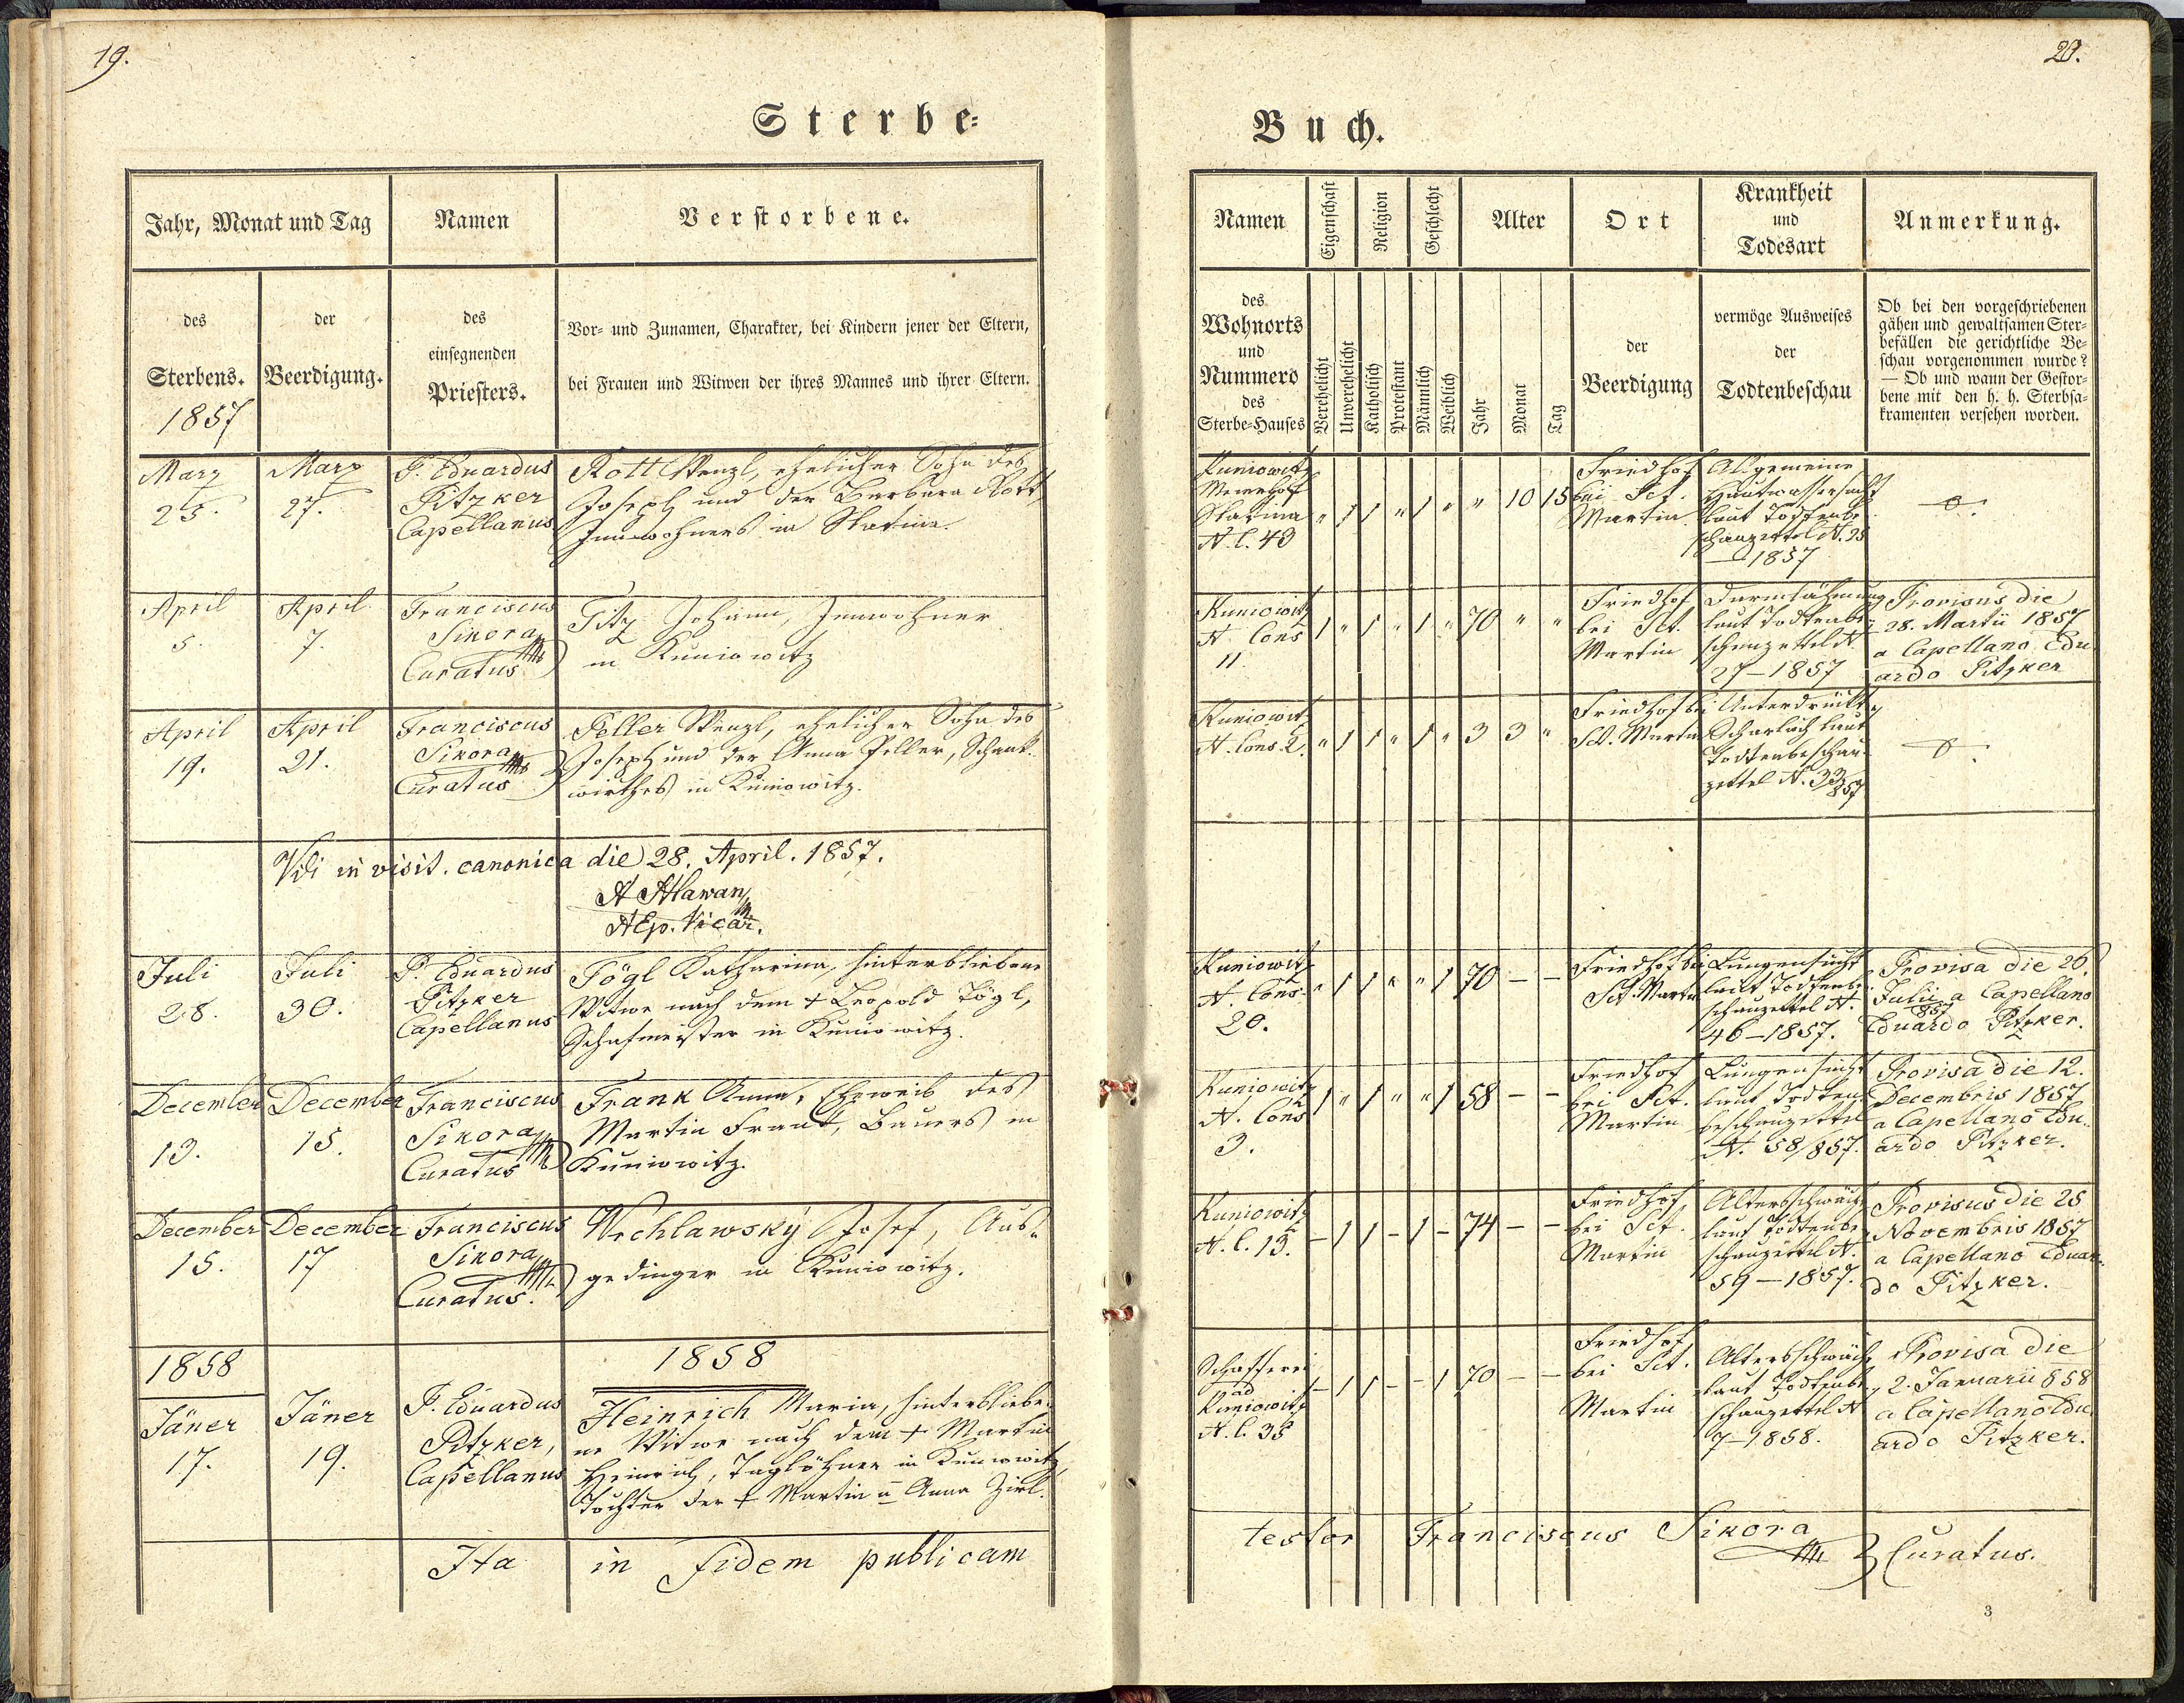 19.
20.
Sterbe=
Buch.
Jahr, Monat und Tag
Namen
Verstorbene.
des
Sterbens.
1857
der
Beerdigung.
des
einsegnenden
Priesters.
Vor- und Zunamen, Charakter, bei Kindern jener der Eltern,
bei Frauen und Witwen der ihres Mannes und ihrer Eltern.
Namen
Eigenschaft
Religion
Geschlecht
Alter
Ort
Krankheit
und
Todesart
Anmerkung.
des
Wohnorts
und
Nummero
des
Sterbe=Hauses
Verehelicht
Unverehelicht
Katholisch
Protestant
Männlich
Weiblich
Jahr
Monat
Tag
der
Beerdigung
vermöge Ausweises
der
Todtenbeschau
Ob bei den vorgeschriebenen
gähen und gewaltsamen Ster=
befällen die gerichtliche Be=
schau vorgenommen wurde?
— Ob und wann der Gestor=
bene mit den h. h. Sterbsa=
kramenten versehen worden.
März
25.
März
27.
P. Eduardus
Pitzker
Capellanus
Rott Wenzl, ehelicher Sohn des
Joseph und der Barbara Rott,
Innwohners in Slatina.
Kuniowitz
Meierhof
Slatina
N. C. 43
" 1 1 " 1 " " 10 15
Friedhof
bei Sct.
Martin.
Allgemeine
Hautwassersucht
laut Todtenbe-
schauzettel N. 25
—1857
—o—.
April
5.
April
7.
Franciscus
Sikora
Curatus
Titz Johann, Innwohner
in Kuniowitz
Kuniowitz
N. Cons
11.
1 " 1 " 1 " 70 " "
Friedhof
bei Sct.
Martin
laut Todtenbe-
schauzettel N
27—1857
Provisus die
28. Martii 1857
a Capellano Edu
ardo Pitzker
April
19.
April
21.
Franciscus
Sikora
Curatus
Peller Wenzl, ehelicher Sohn des
Joseph und der Anna Peller, Schank-
wirthes in Kuniowitz.
Kuniowitz
N. Cons. 2.
" 1 1 " 1 " 3 3 "
Friedhof bei
Sct. Martin
Unterdrückter
Scharlach laut
Todtenbeschau-
zettel N. 33/857
—o—.
Vidi in visit. canonica die 28. April. 1857.
AEp. Vicar.
Juli
28.
Juli
30.
P. Eduardus
Pitzker
Capellanus
Tögl Katharina, hinterbliebene
Witwe nach dem † Leopold Tögl,
Schafmeister in Kuniowitz.
Kuniowitz
N. Cons.
20.
" 1 1 " " 1 70 — —
Friedhof bei
Sct. Martin
Lungensucht
laut Todtenbe-
schauzettel N.
46—1857.
Provisa die 26.
Julii a Capellano
857
Eduardo Pitzker.
December
13.
December
15.
Franciscus
Sikora
Curatus
Frank Anna, Eheweib des
Martin Frank, Bauers in
Kuniowitz.
Kuniowitz
N. Cons
3.
1 " 1 " " 1 58 — —
Friedhof
bei Sct.
Martin
Lungensucht
laut Todten
beschauzettel
N. 58/857.
Provisa die 12.
Decembris 1857
a Capellano Edu-
ardo Pitzker.
December
15.
December
17
Franciscus
Sikora
Curatus.
Wechlawský Josef, Aus-
gedinger in Kuniowitz.
Kuniowitz
N. C. 15.
— 1 1 — 1 — 74 — —
Friedhof
bei Sct.
Martin
Altersschwäche
laut Todtenbe-
schauzettel N.
59—1857.
Provisus die 25
Novembris 1857
a Capellano Eduar-
do Pitzker.
1858
1858
Jäner
17.
Jäner
19.
P. Eduardus
Pitzker,
Capellanus
Heinrich Maria, hinterbliebe-
ne Witwe nach dem † Martin
Heinrich, Taglöhner in Kuniowitz,
Tochter der † Martin u Anna Zirl.
Schafferei
ad
Kuniowitz
N. C. 35
— 1 1 — — 1 70 — —
Friedhof
bei Sct.
Martin
Altersschwäche
laut Todtenbe-
schauzettel N
7—1858.
Provisa die
2. Januarii 858
a Capellano Edu
ardo Pitzker.
Ita in fidem publicam
testor Franciscus Sikora
Curatus.
3